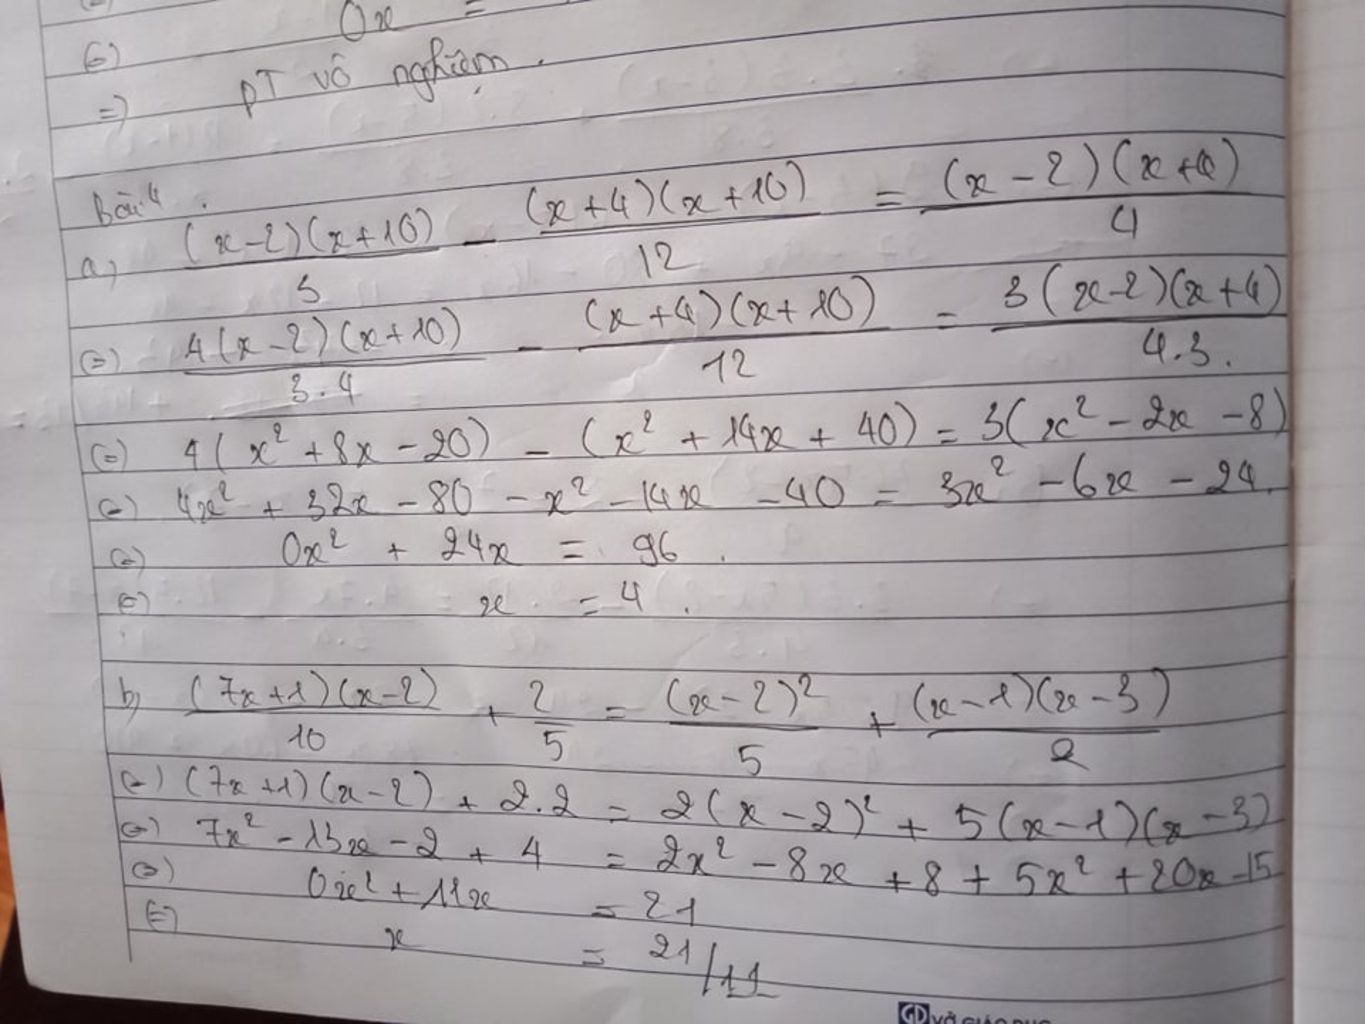 (=) 0x =
=) PT vô nghiệm.
Bài 4.
a, (x-2)(x+10)/3 - (x+4)(x+10)/12 = (x-2)(x+4)/4
(=) 4(x-2)(x+10)/3.4 - (x+4)(x+10)/12 = 3(x-2)(x+4)/4.3.
(=) 4(x² + 8x - 20) - (x² + 14x + 40) = 3(x² - 2x - 8)
(=) 4x² + 32x - 80 - x² - 14x - 40 = 3x² - 6x - 24.
(=) 0x² + 24x = 96.
(=) x = 4.
b, (7x+1)(x-2)/10 + 2/5 = (x-2)²/5 + (x-1)(x-3)/2
(=) (7x+1)(x-2) + 2.2 = 2(x-2)² + 5(x-1)(x-3)
(=) 7x² - 13x - 2 + 4 = 2x² - 8x + 8 + 5x² + 20x - 15
(=) 0x² + 11x = 21
(=) x = 21/11
GD VỞ GIÁO DỤC